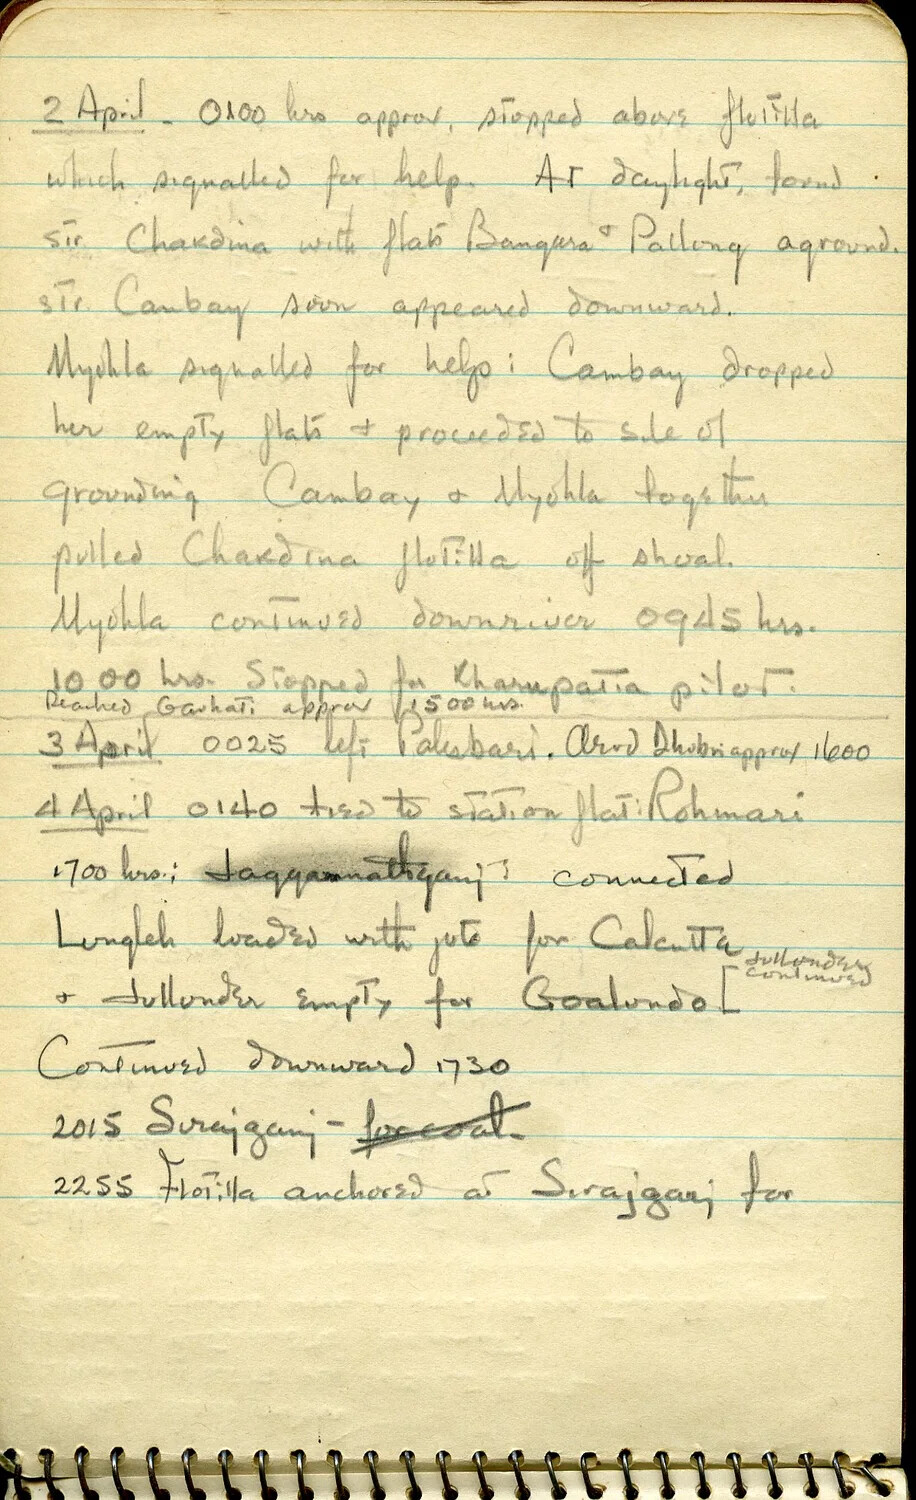 2 April - 0100 hrs approx, stopped above flotilla
which signalled for help. At daylight, found
str. Chakdina with flats Bangara & Pallong aground.
str. Cambay soon appeared downward.
Myohla signalled for help; Cambay dropped
her empty flats & proceeded to site of
grounding Cambay & Myohla together
pulled Chakdina flotilla off shoal.
Myohla continued downriver 0945 hrs.
1000 hrs. Stopped for Kharupatia pilot.
Reached Gauhati approx 1500 hrs.
3 April 0025 left Palasbari. Arvd Dhubri approx 1600
4 April 0140 tied to station flat: Rohmari
1700 hrs.; Jaggannathganj; connected
Lungleh loaded with jute for Calcutta
& Jullunder empty for Goalundo [Jullunder
continued
Continued downward 1730
2015 Sirajganj - for coal.
2255 Flotilla anchored at Sirajganj for